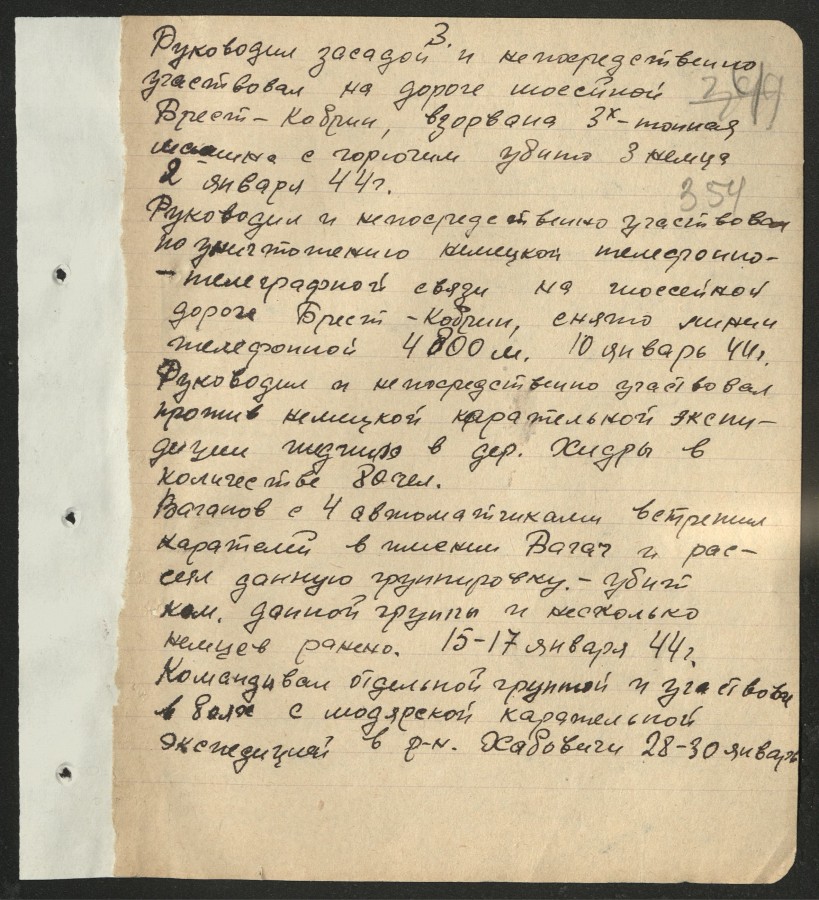 3.
Руководил засадой и непосредственно
участвовал на дороге шоссейной
Брест-Кобрин, взорвана 3х-тонная
машина с горючим убито 3 немца
2 января 44г.
354
Руководил и непосредственно участвовал
по уничтожению немецкой телефонно-
-телеграфной связи на шоссейной
дороге Брест-Кобрин, снято линии
телефонной 4800 м. 10 январь 44г.
Руководил и непосредственно участвовал
против немецкой карательной экспи-
диции в дер. Хидры в
количестве 80 чел.
Ваганов с 4 автоматчиками встретил
карателей в имении Вагач и рас-
сеял данную группировку. - убит
ком. данной группы и несколько
немцев ранено. 15-17 января 44г.
Командывал отдельной группой и участвова
в боях с модярской карательной
экспедицией в р-н. Хабовичи 28-30 январь